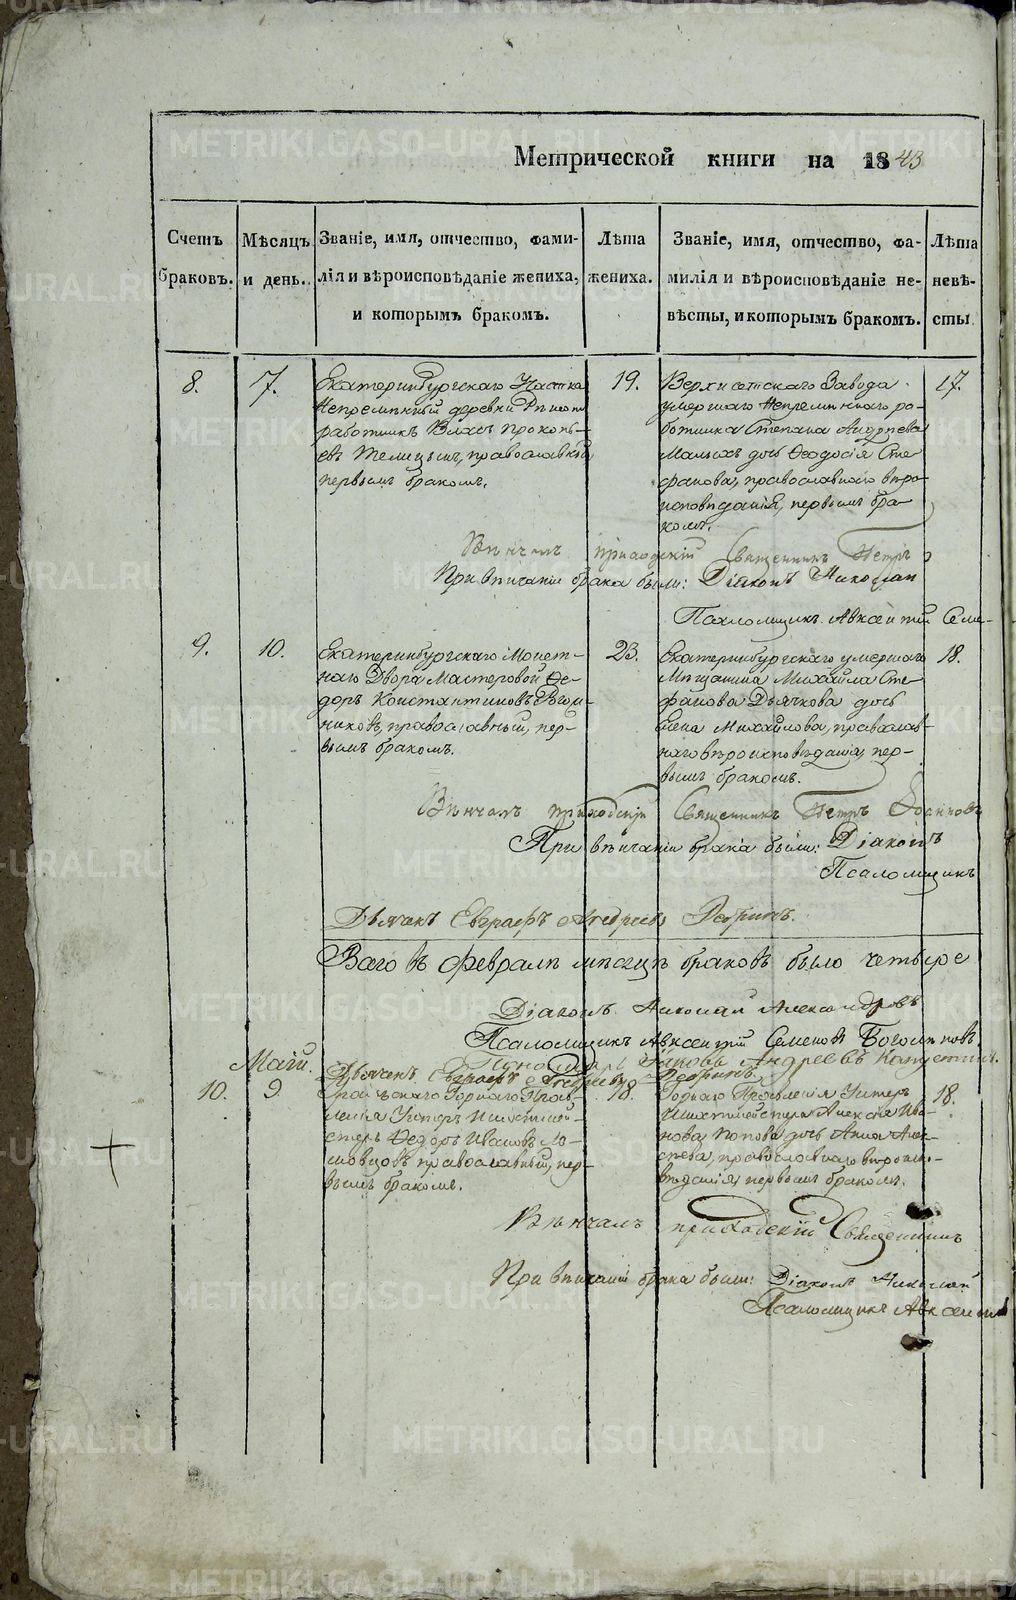 Метрической книги на 1843
Счетъ браковъ.
Мѣсяцъ и день.
Званіе, имя, отчество, фами-
лія и вѣроисповѣданіе жениха,
и которымъ бракомъ.
Лѣта
жениха.
Званіе, имя, отчество, фа-
милія и вѣроисповѣданіе не-
вѣсты, и которымъ бракомъ.
Лѣта
невѣ-
сты.
8.
7.
Екатеринбургскаго
Непремѣнный деревни
работникъ Власъ Прокопь-
евъ православный
первымъ бракомъ.
19.
Верхисетскаго Завода
умершаго Непремѣннаго ра-
ботника Степана Андреева
Малыхъ дочь Ѳеодосія Сте-
фанова, православнаго вѣро-
исповѣданія, первымъ бра-
комъ.
17.
Вѣнчалъ приходскій Священникъ Петръ
При вѣнчаніи брака были: Діаконъ Николай
Псаломщикъ Авксентій Семе-
9.
10.
Екатеринбургскаго Монет-
наго Двора Мастеровой Ѳе-
доръ Константиновъ
никовъ, православный, пер-
вымъ бракомъ.
23.
Екатеринбургскаго умершаго
Мѣщанина Михайла Сте-
фанова Дьячкова дочь
Елена Михайлова, православ-
наго вѣроисповѣданія, пер-
вымъ бракомъ.
18.
Вѣнчалъ приходскій Священникъ Петръ
При вѣнчаніи брака были: Діаконъ
Псаломщикъ
Дьячекъ Евграфъ Андреевъ
въ Февралѣ мѣсяцѣ браковъ было четыре
Діаконъ Николай Александровъ
Псаломщикъ Авксентій Семеновъ Боголѣповъ
Пономарь Яковъ Андреевъ
Дьячекъ Евграфъ Андреевъ
10.
9.
Горнаго Прав-
ленія Унтеръ Шихтмей-
стеръ Ѳедоръ Ивановъ Ло-
мовцовъ православный, пер-
вымъ бракомъ.
18.
Горнаго Правленія Унтеръ
Шихтмейстера Алексѣя Ива-
нова Попова дочь Анна Алек-
сѣева, православнаго вѣроиспо-
вѣданія, первымъ бракомъ.
18.
Вѣнчалъ приходскій Священникъ
При вѣнчаніи брака были: Діаконъ Николай
Псаломщикъ Авксентій
METRIKI.GASO-URAL.RU